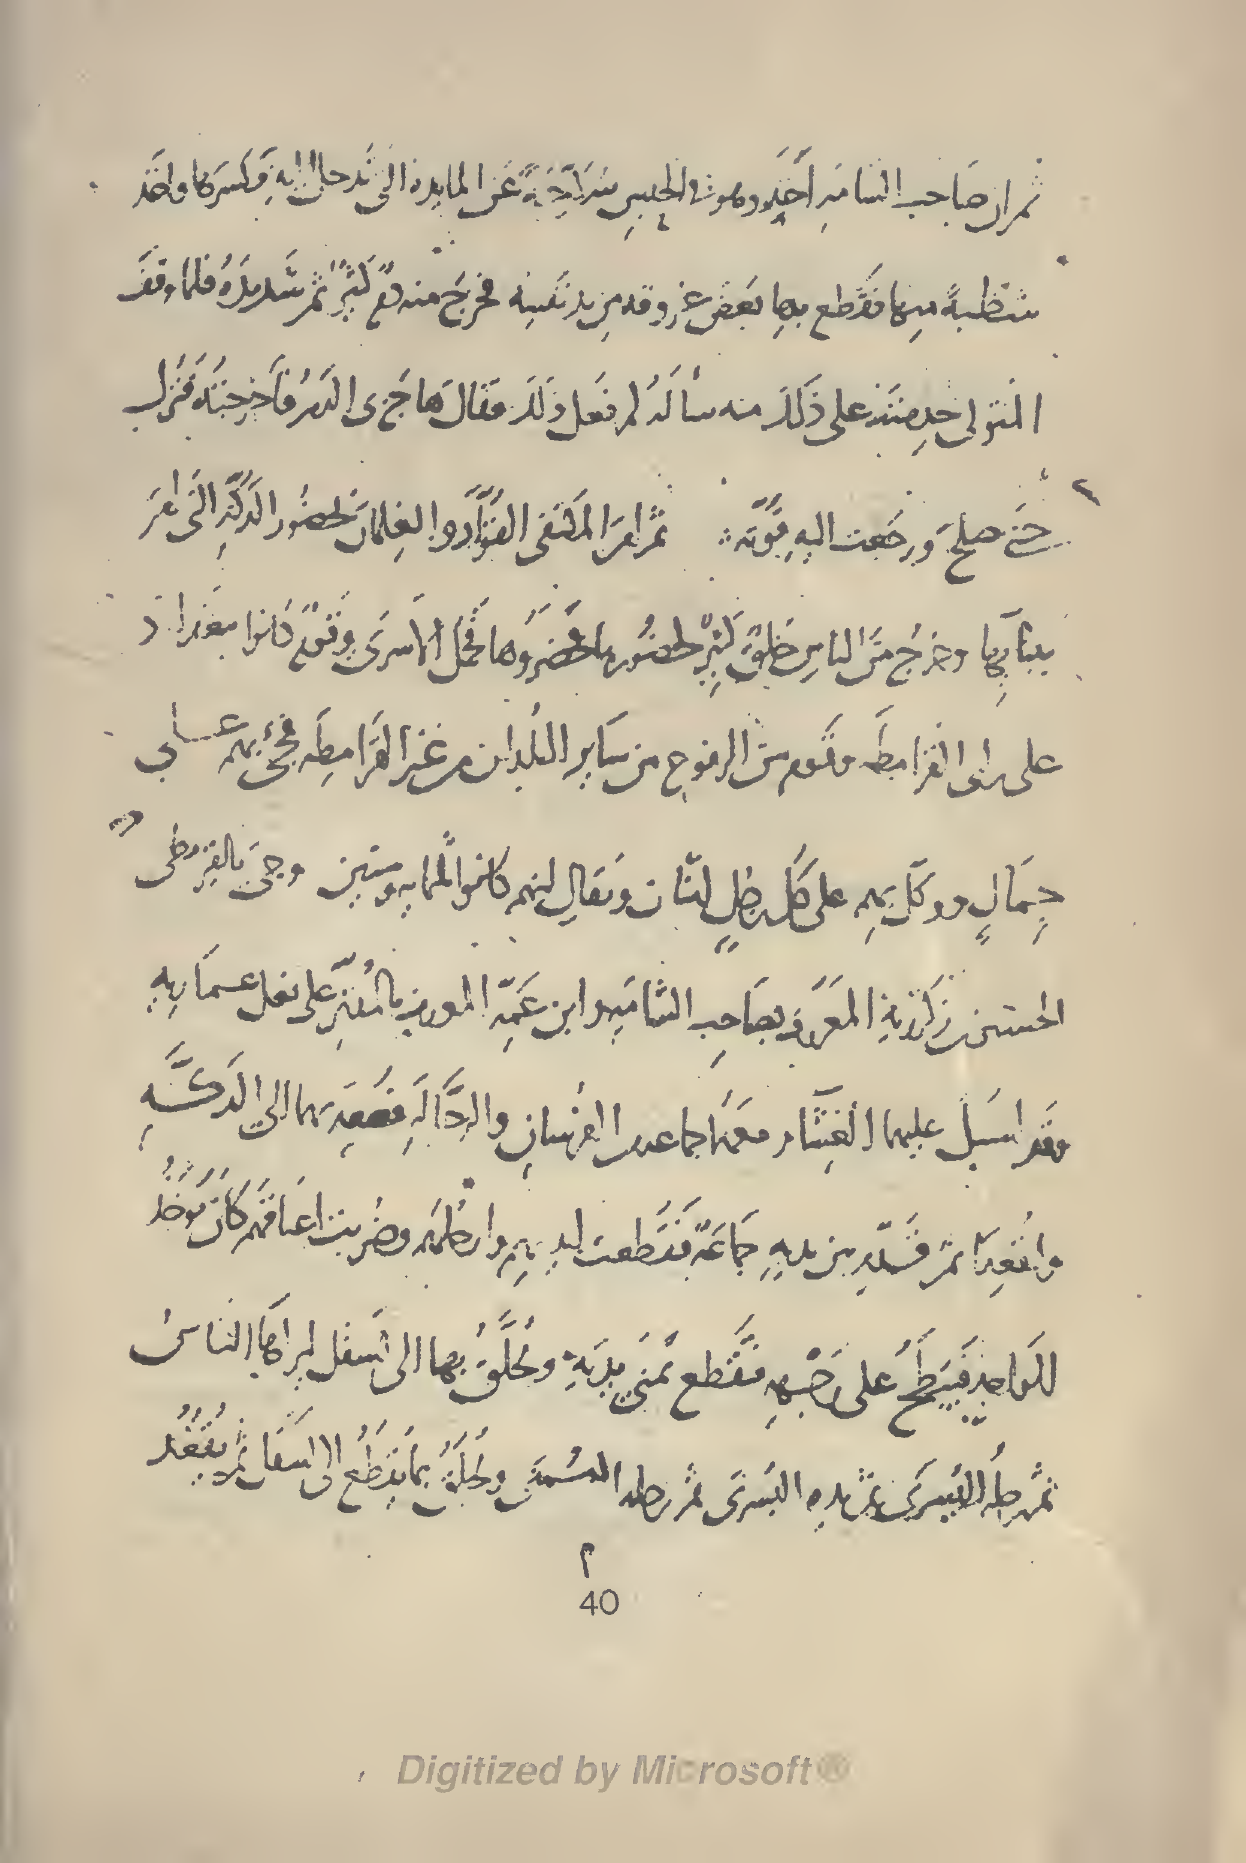 ثم ان صاحب الشامة أخذ وهو في الحبس سكرجة عن المايدة التي تدخل اليه وكسرها واخذ
شظية منها فقطع بها بعض عروقه من يد نفسه فخرج منه دم كثير ثم شد يده فلما وقف
المتولي خدمته على ذلك منه سأله لم فعل ذلك فقال هاج بي الدم فأخرجته فترك
حتى صلح ورجعت اليه قوته ثم امر المكتفي القواد والغلمان بحضور الدكة التي امر
ببنائها وخرج من الناس خلق كثير لحضورها فحضروها فحمل الاسرى وقوم كانوا ببغداد
على راي القرامطة وقوم من الرفوع من ساير البلدان من غير القرامطة فجيء بهم على
جمال ووكل بهم على كل رجل اثنان ويقال انهم كانوا ثلثمايه وستين وجيء بالقرمطي
الحسين بن زكرويه المعروف بصاحب الشامة وابن عمه المعروف بالمدثر على بغل عمارية
وقد اسبل عليهما الغشاء معهما جماعة من الفرسان والرجالة فصعد بهما الى الدكة
واقعدا ثم قدم بين يديه جماعة فقطعت ايديهم وارجلهم وضربت اعناقهم كان يؤخذ
الواحد فيبطح على وجهه فتقطع يمنى يديه ويحلق بها الى اسفل ليراها الناس
ثم رجله اليسرى ثم يده اليسرى ثم رجله اليمنى ويحلق بما يقطع الى اسفل ثم يقعد
م
40
Digitized by Microsoft®